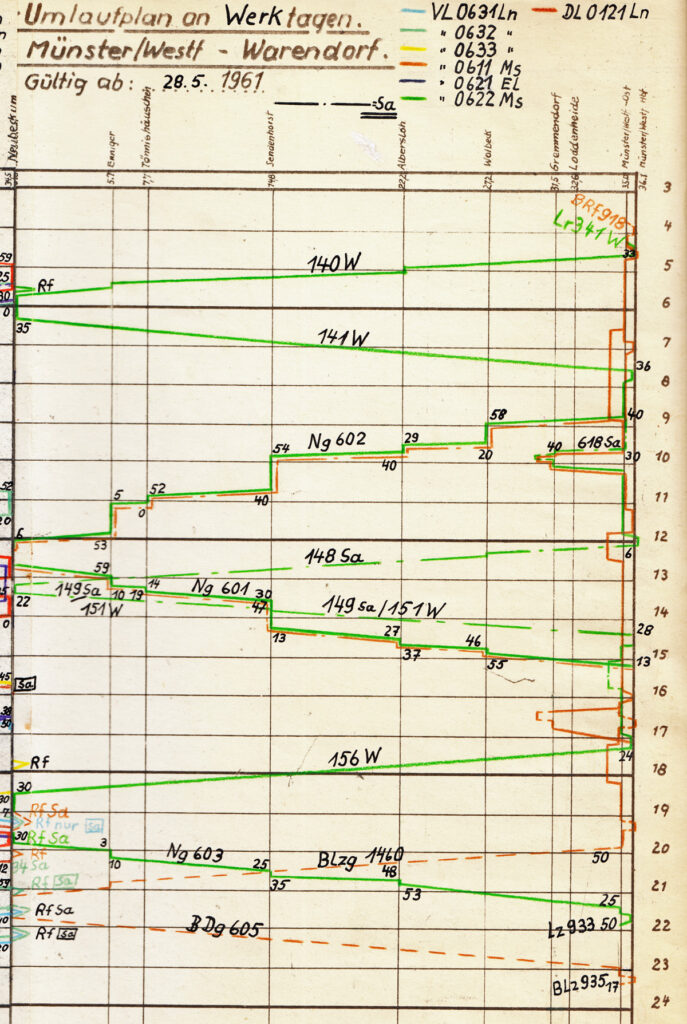 Umlaufplan an Werktagen.
Münster/Westf - Warendorf.
Gültig ab: 28.5. 1961
VL 0631 Ln
" 0632 "
" 0633 "
" 0611 Ms
" 0621 EL
" 0622 Ms
DL 0121 Ln
Sa
Neubeckum
5.7 Enniger
7.7 Tönnishäuschen
14.8 Sendenhorst
22.2 Albersloh
27.2 Wolbeck
31.5 Gremmendorf
32.6 Loddenheide
35.0 Münster/Westf -Ost
36.1 Münster/Westf Hbf
3
BRf918
4
Lr341W
33
59
140W
5
25
Rf
30
0
6
35
141W
7
36
8
58
40
9
54
Ng 602
29
40
618Sa
40
20
30
10
52
5
52
0
40
11
20
6
53
12
148 Sa
6
59
13
149Sa
/151W
10
19
14
Ng 601
30
47
149Sa/151W
22
14
0
28
13
27
46
37
55
15
13
45
Sa
16
38
50
17
156W
24
Rf
18
30
30
19
Rf Sa
Rf nur Sa
30
Rf Sa
3
Ng 603
BLzg 1460
50
20
Rf
10
25
48
34Sa
35
53
Rf Sa
21
25
Rf Sa
BDg 605
Lz 933.50
22
Rf Sa
20
23
BLz935
17
24